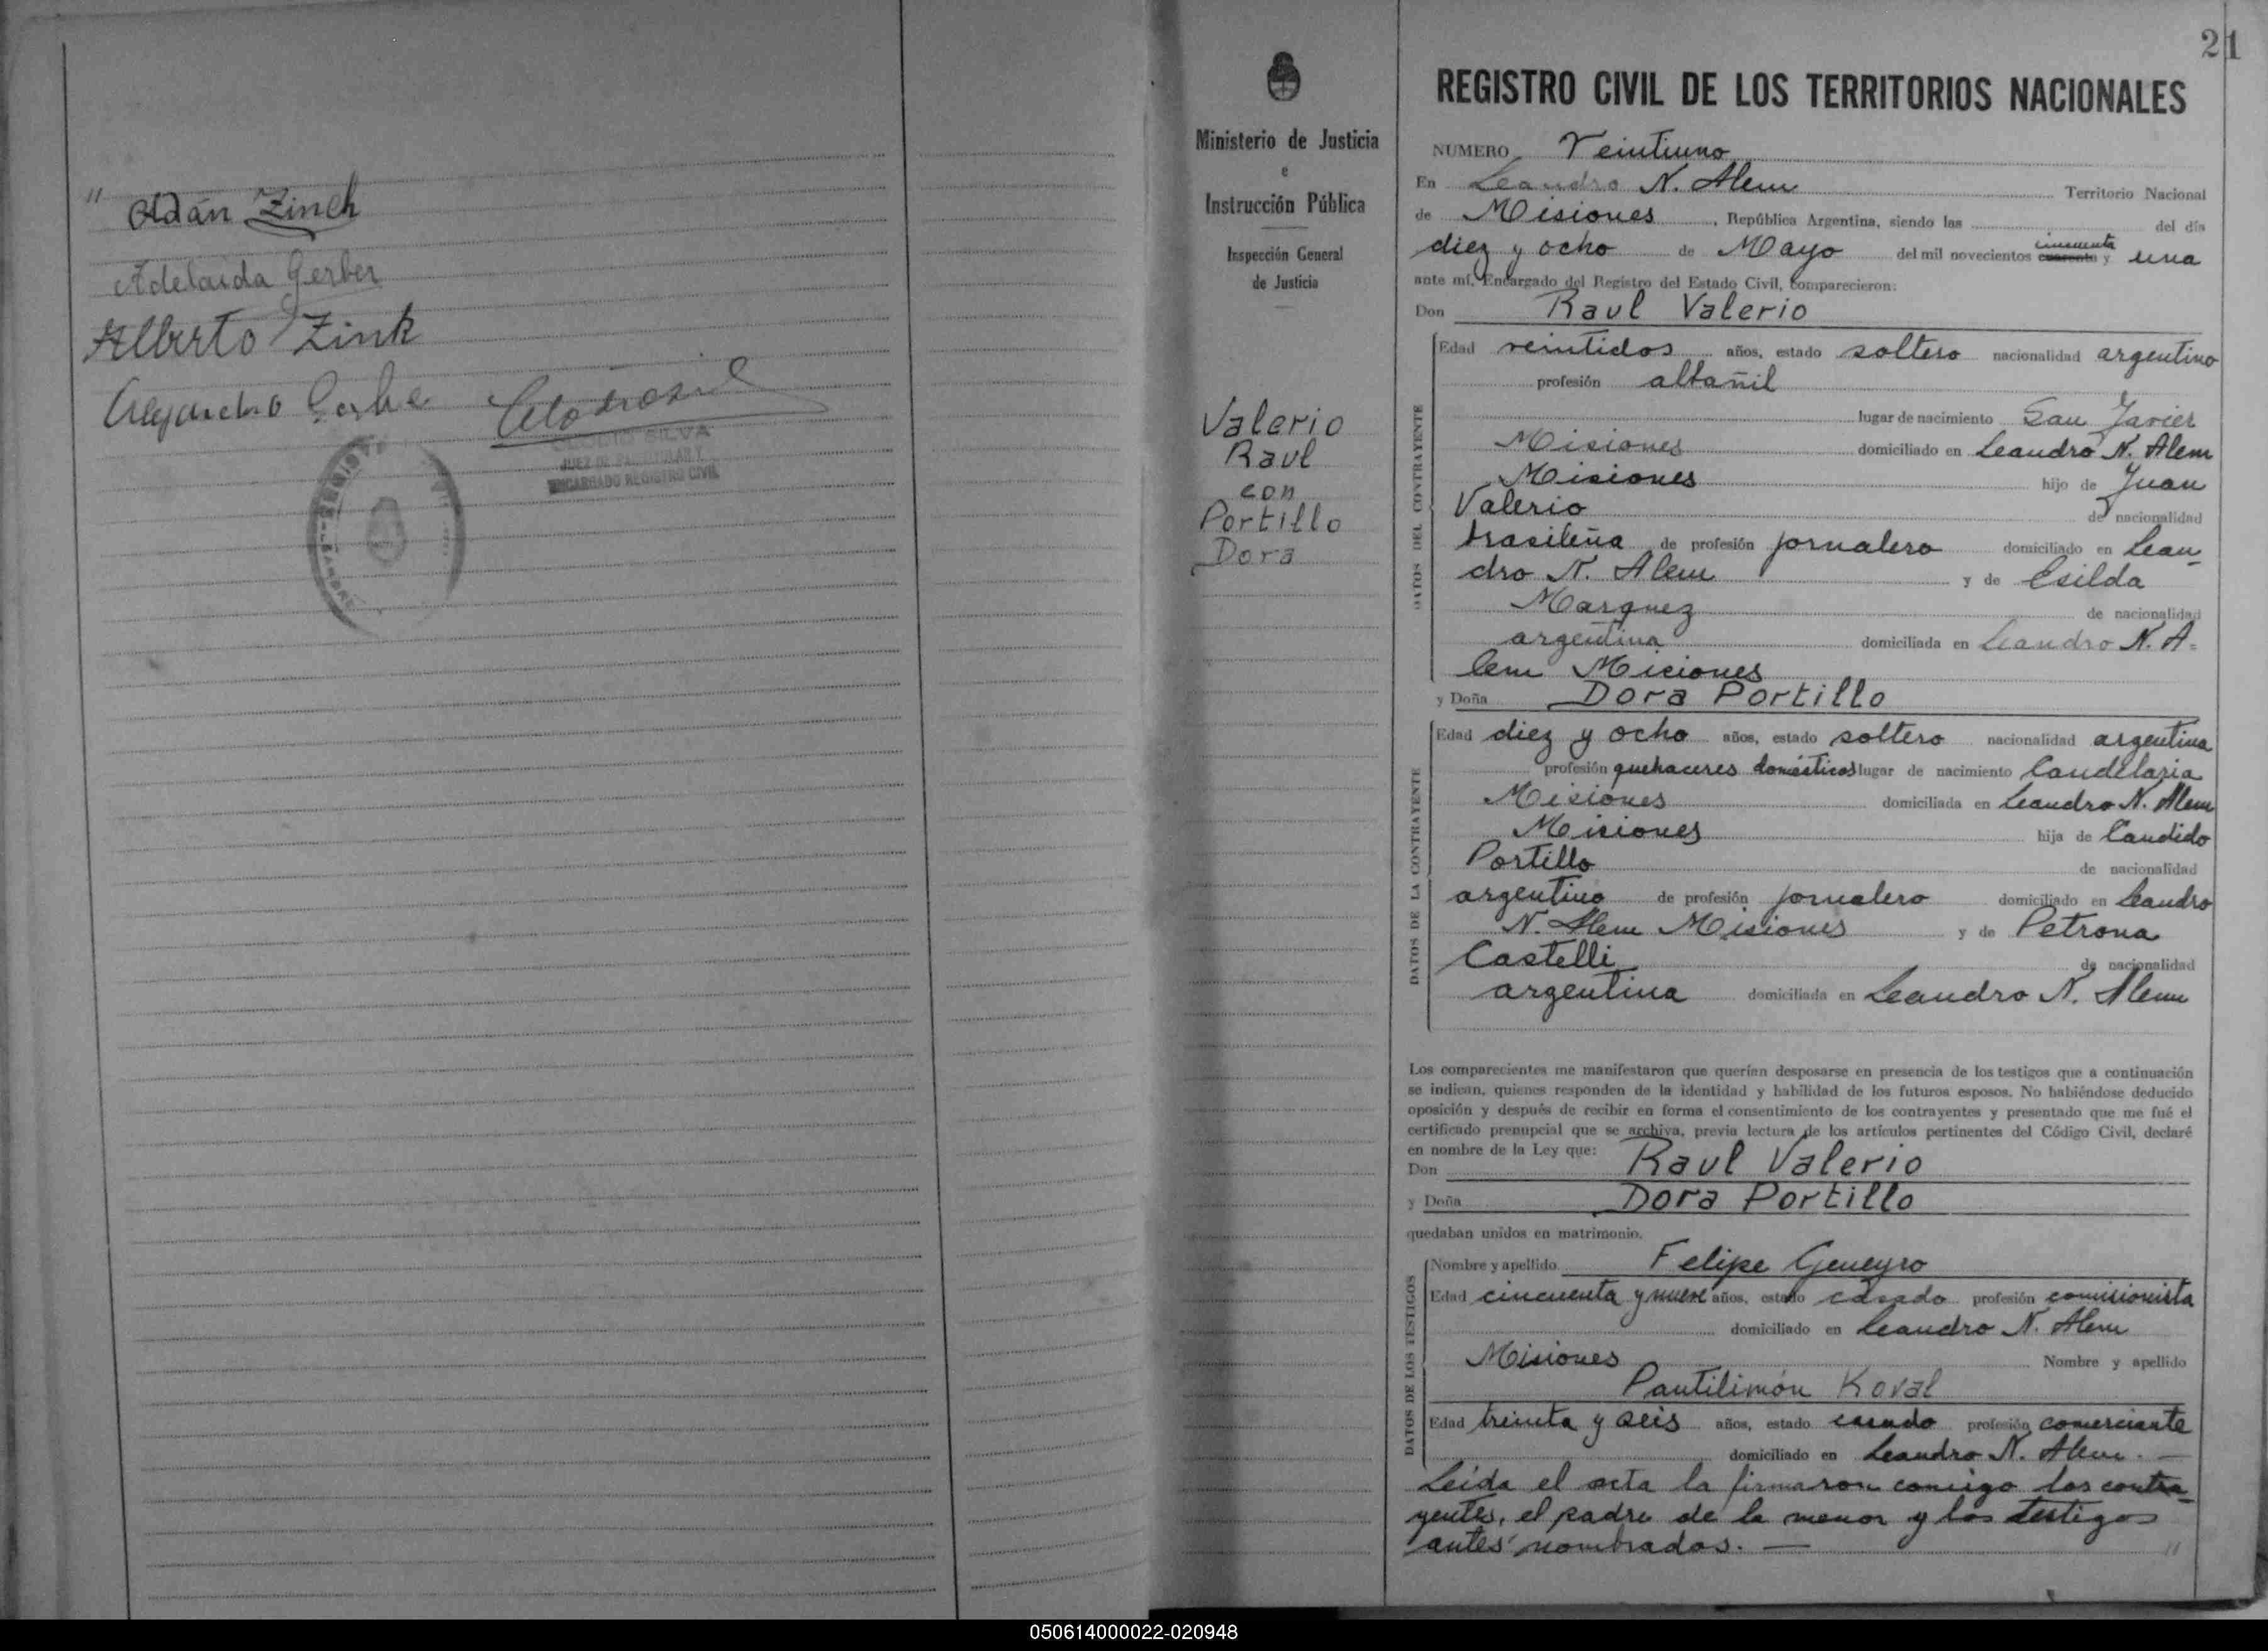 "
Adán Zinck
Adelaida Gerber
Alberto Zink
SILVA
JUEZ DE
ENCARGADO REGISTRO CIVIL
21
Ministerio de Justicia
e
Instrucción Pública
Inspección General
de Justicia
Valerio
Raul
con
Portillo
Dora
REGISTRO CIVIL DE LOS TERRITORIOS NACIONALES
NUMERO Veintiuno
En Leandro N. Alem Territorio Nacional
de Misiones, República Argentina, siendo las del día
diez y ocho de Mayo del mil novecientos cincuenta cuarenta y una
ante mí, Encargado del Registro del Estado Civil, comparecieron:
Don Raul Valerio
DATOS DEL CONTRAYENTE
Edad veintidos años, estado soltero nacionalidad argentino
profesión albañil
lugar de nacimiento San Javier
Misiones domiciliado en Leandro N. Alem
Misiones hijo de Juan
Valerio de nacionalidad
brasileña de profesión jornalero domiciliado en Lean-
dro N. Alem y de Esilda
Marquez de nacionalidad
argentina domiciliada en Leandro N. A-
lem Misiones
y Doña Dora Portillo
DATOS DE LA CONTRAYENTE
Edad diez y ocho años, estado soltero nacionalidad argentina
profesión quehaceres domésticos lugar de nacimiento Candelaria
Misiones domiciliada en Leandro N. Alem
Misiones hija de Candido
Portillo de nacionalidad
argentino de profesión jornalero domiciliado en Leandro
N. Alem Misiones y de Petrona
Castelli de nacionalidad
argentina domiciliada en Leandro N. Alem
Los comparecientes me manifestaron que querían desposarse en presencia de los testigos que a continuación
se indican, quienes responden de la identidad y habilidad de los futuros esposos. No habiéndose deducido
oposición y después de recibir en forma el consentimiento de los contrayentes y presentado que me fué el
certificado prenupcial que se archiva, previa lectura de los artículos pertinentes del Código Civil, declaré
en nombre de la Ley que:
Don Raul Valerio
y Doña Dora Portillo
quedaban unidos en matrimonio.
DATOS DE LOS TESTIGOS
Nombre y apellido Felipe Geneyro
Edad cincuenta y nueve años, estado casado profesión comisionista
domiciliado en Leandro N. Alem
Misiones Nombre y apellido
Pantilimón Koval
Edad treinta y seis años, estado casado profesión comerciante
domiciliado en Leandro N. Alem. —
Leída el acta la firmaron conmigo los contra-
yentes, el padre de la menor y los testigos
antes nombrados. — "
050614000022-020948